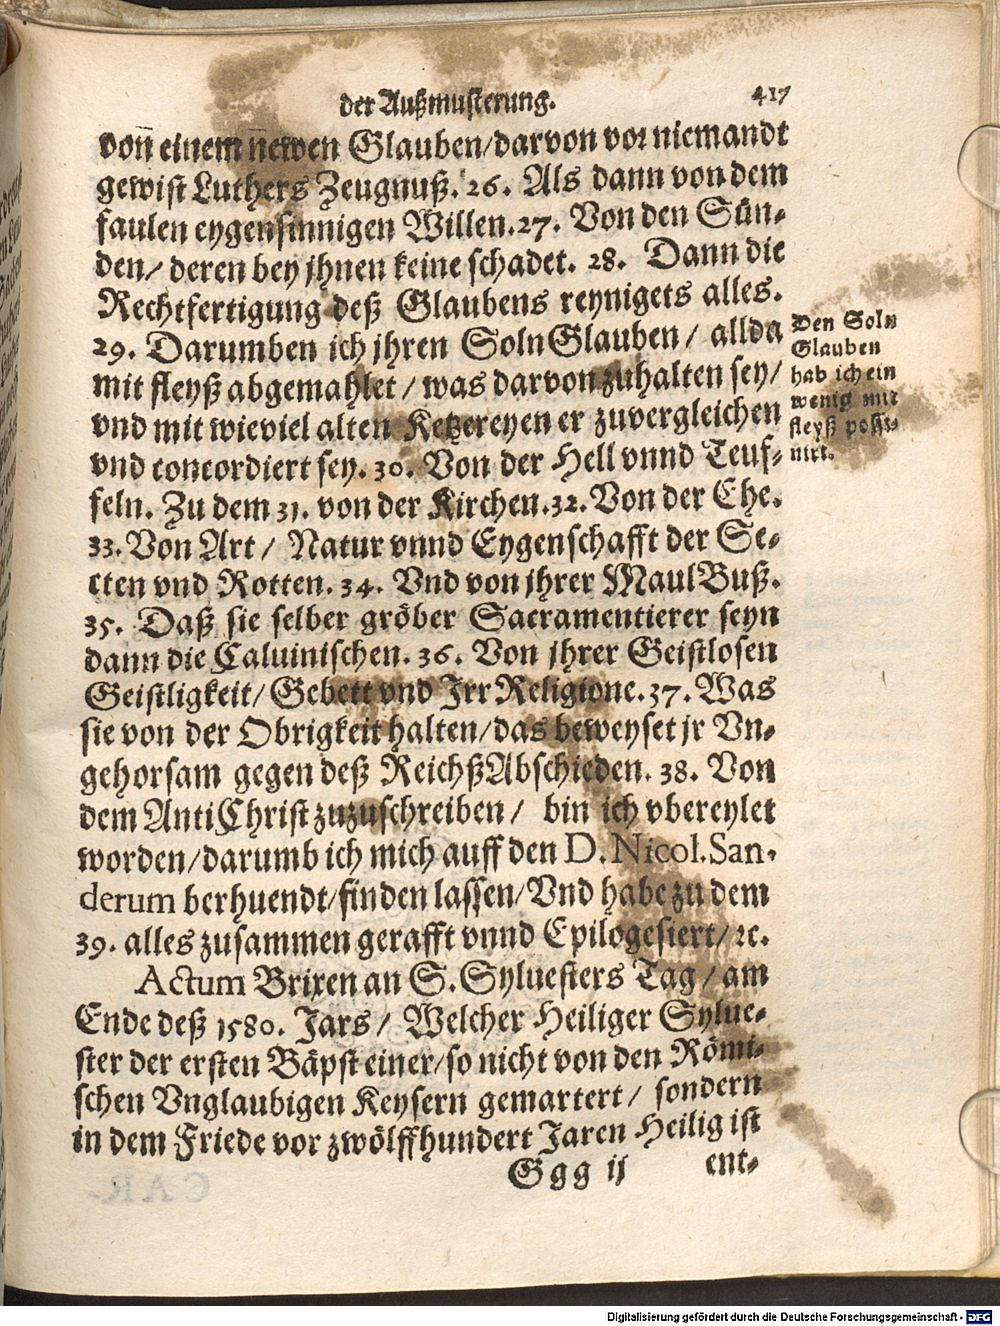 der Außmusterung. 417
von̄ einem n̄ewen Glauben/darvon vor niemandt
gewist Luthers Zeugnuß. 26. Als dann von dem
faulen eygensinnigen Willen.27. Von den Sün-
den/ deren bey jhnen keine schadet. 28. Dann die
Rechtfertigung deß Glaubens reynigets alles.
29. Darumben ich jhren SolnGlauben/ allda
mit fleyß abgemahlet/was darvon zuhalten sey/
vnd mit wieviel alten Ketzereyen er zuvergleichen
vnd concordiert sey. 30. Von der Hell vnnd Teuf-
feln. Zu dem 31. von der Kirchen.32. Von der Ehe.
33. Von Art/ Natur vnnd Eygenschafft der Se-
cten vnd Rotten. 34. Vnd von jhrer MaulBuß.
35. Daß sie selber gröber Sacramentierer seyn
dann die Caluinischen. 36. Von jhrer Geistlosen
Geistligkeit/Gebett vnd JrrReligione.37. Was
sie von der Obrigkeit halten/das beweyset jr Vn-
gehorsam gegen deß ReichßAbschieden. 38. Von
dem AntiChrist zuzuschreiben/ bin ich vbereylet
worden/darumb ich mich auff den D. Nicol. San-
derum berhuendt/finden lassen/Vnd habe zu dem
39. alles zusammen gerafft vnnd Epilogesiert/ ꝛc.
Actum Brixen an S. Syluesters Tag/am
Ende deß 1580. Jars/ Welcher Heiliger Sylue-
ster der ersten Bäpst einer/so nicht von den Römi-
schen Vnglaubigen Keysern gemartert/ sondern
in dem Friede vor zwölffhundert Jaren Heilig ist
Ggg ij ent-
Den Soln
Glauben
hab ich ein
wenig mit
fleyß possi-
niert.
Digitalisierung gefördert durch die Deutsche Forschungsgemeinschaft - DFG